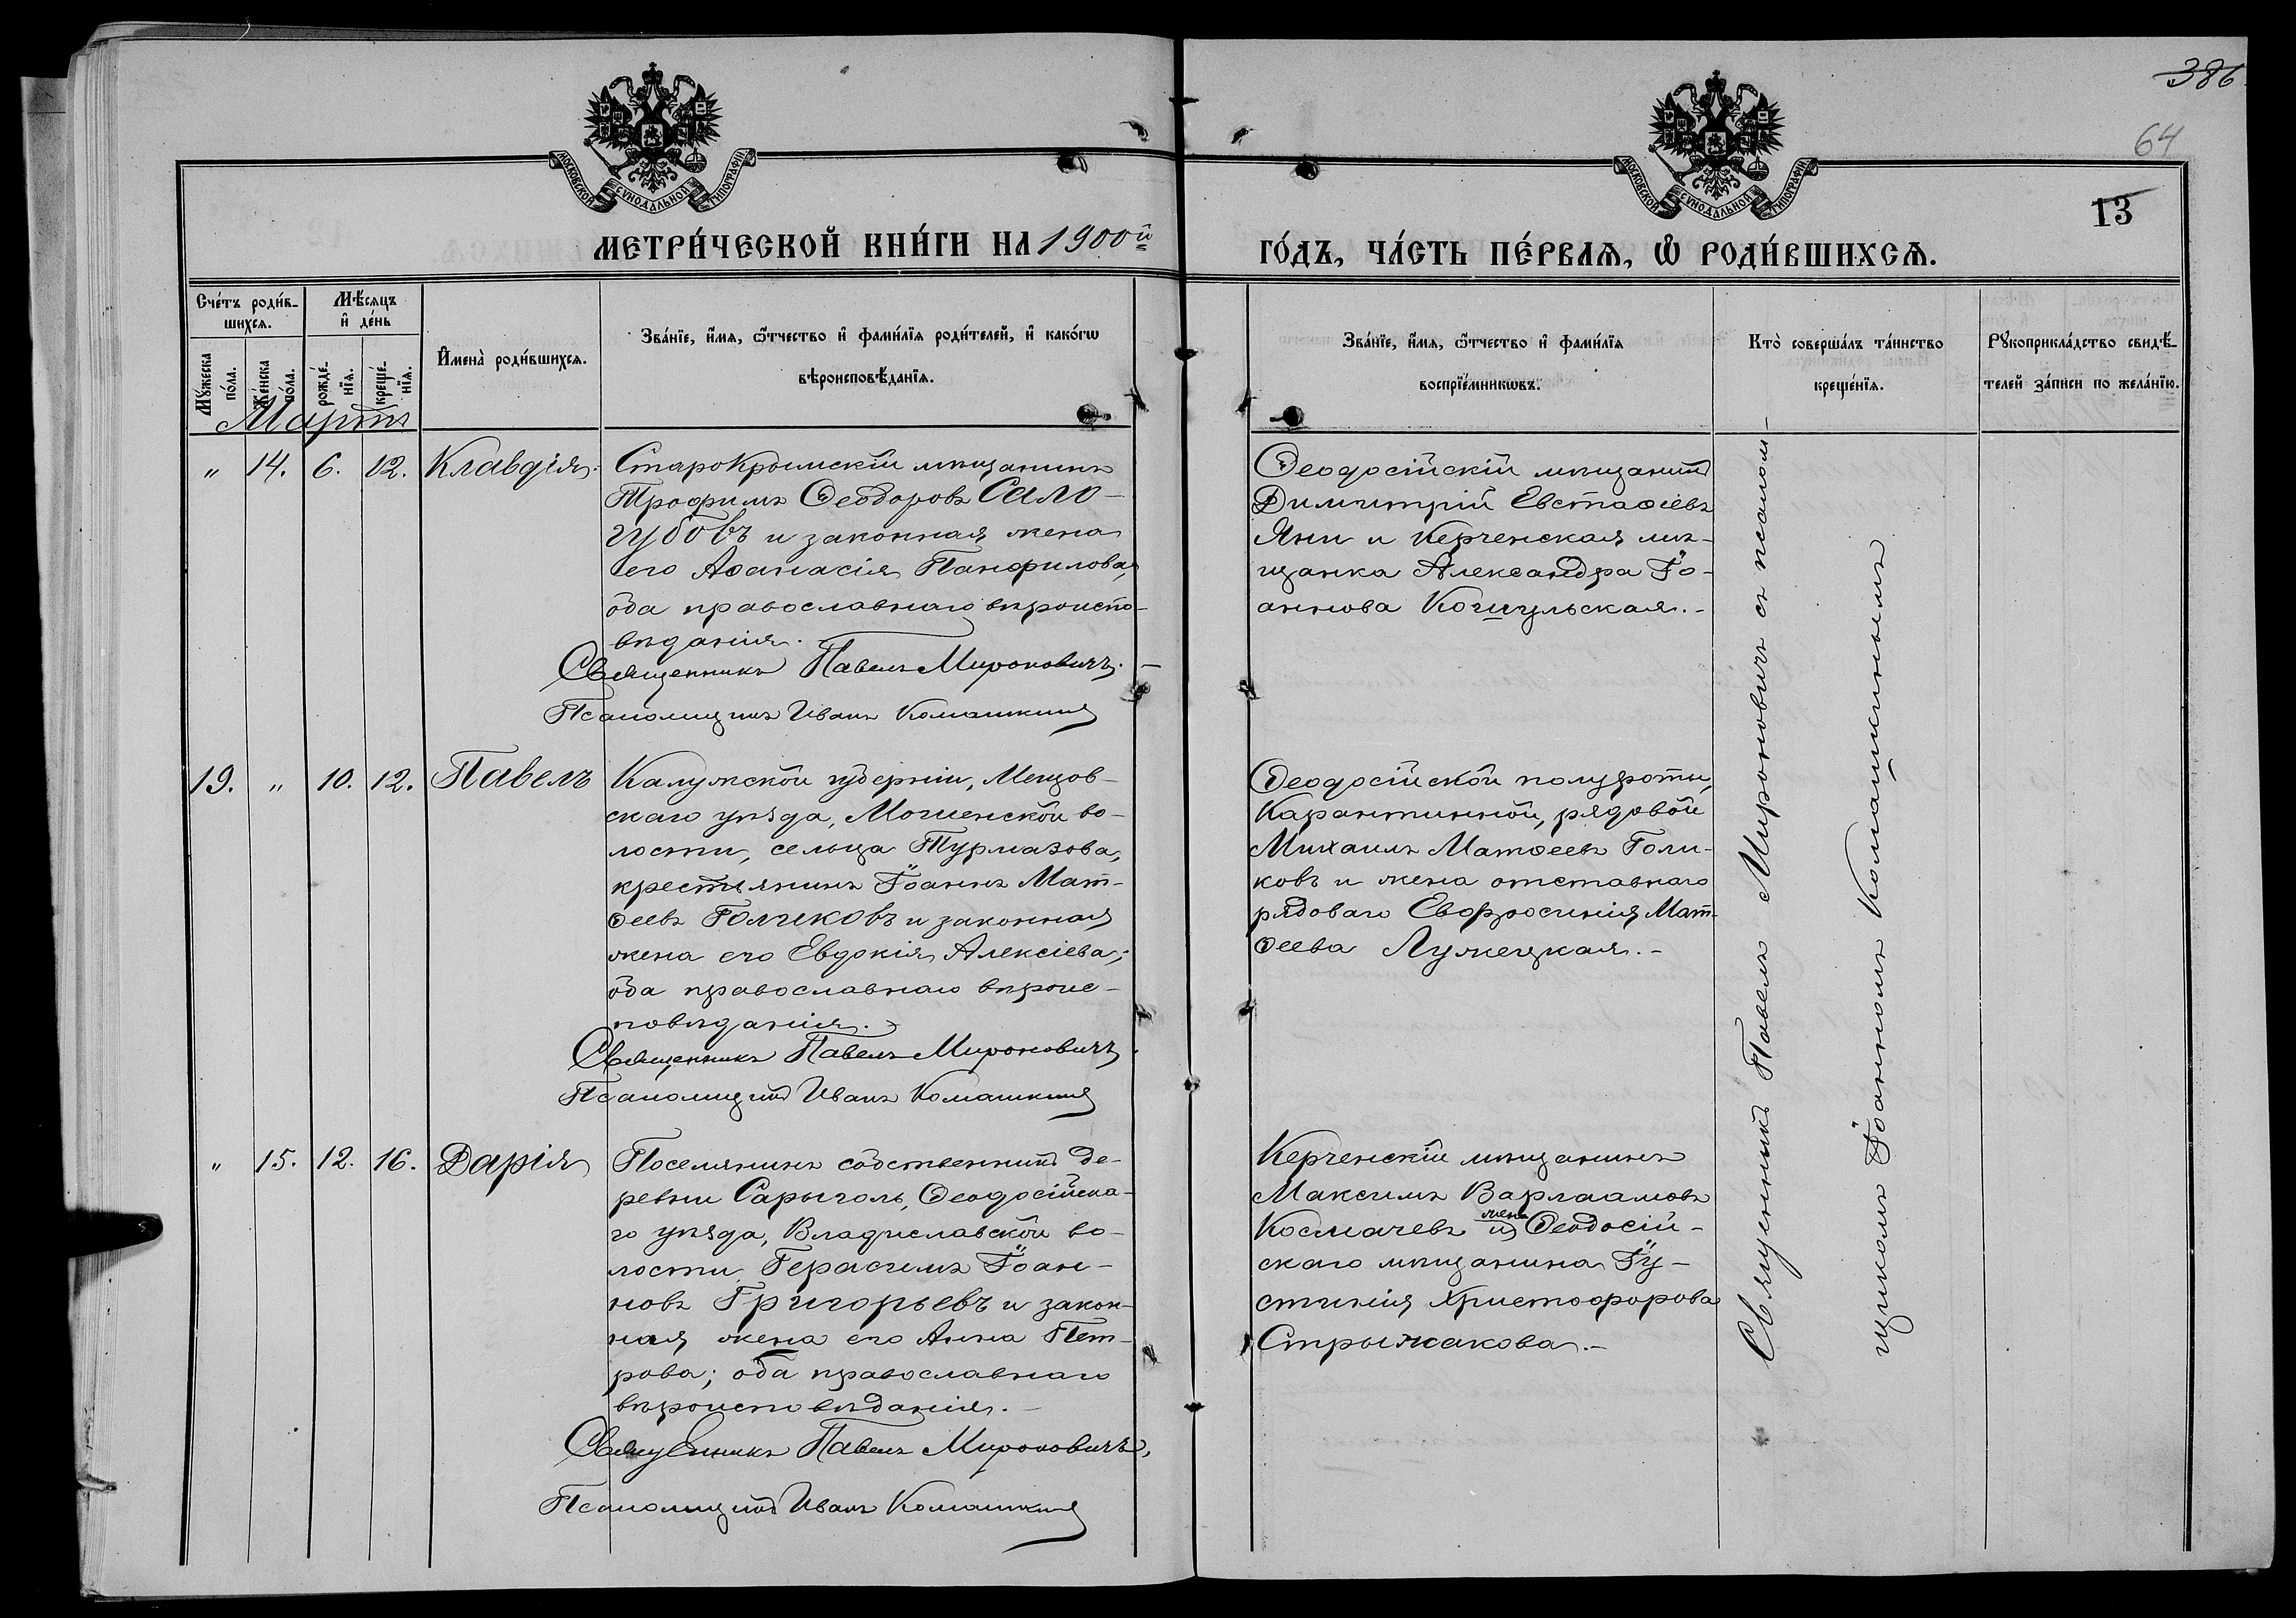 386
64
13
МОСКОВСКОЙ СѴНОДАЛЬНОЙ ТИПОГРАФІИ
МОСКОВСКОЙ СѴНОДАЛЬНОЙ ТИПОГРАФІИ
МЕТРИ́ЧЕСКОЙ КНИ́ГИ НА 1900й
ГО́ДЪ, ЧА́СТЬ ПЕ́РВАѦ, Ѽ РОДИ́ВШИХСѦ.
Сче́тъ роди́в-
шихсѧ.
Мѣ́сѧцъ
и҆ де́нь
Мꙋ́жеска
по́ла.
Же́нска
по́ла.
рожде́-
нїѧ.
креще́-
нїѧ.
И҆мена̀ роди́вшихсѧ.
Зва́нїе, и҆́мѧ, ѻ҆́тчество и҆ фами́лїѧ роди́телей, и҆ како́гѡ
вѣроисповѣ́данїѧ.
Зва́нїе, и҆́мѧ, ѻ҆́тчество и҆ фами́лїѧ
воспрїе́мникѡвъ.
Кто̀ соверша́лъ та́инство
креще́нїѧ.
Рꙋкоприкла́дство свидѣ́-
телей за́писи по жела́нїю.
Мартъ
" 14. 6. 12. Клавдія.
СтароКрымскій мѣщанинъ
Трофимъ Ѳеодоровъ Сало-
губовъ и законная жена
его Аѳанасія Панфилова,
оба православнаго вѣроиспо-
вѣданія.
Священникъ Павелъ Мироновичъ.
Псаломщикъ Иванъ Комашкинъ
Ѳеодосійскій мѣщанинъ
Димитрій Евстаѳіевъ
Яни и Керченская мѣ-
щанка Александра Іо-
аннова Кошульская.-
19. " 10. 12. Павелъ
Калужской губерніи, Мещов-
скаго уѣзда, Мошенской во-
лости, сельца Турмазова,
крестьянинъ Іоаннъ Мат-
ѳеевъ Голиковъ и законная
жена его Евдокія Алексіева;
оба православнаго вѣроис-
повѣданія.
Священникъ Павелъ Мироновичъ.
Псаломщикъ Иванъ Комашкинъ
Ѳеодосійской полуроты,
Карантинной, рядовой
Михаилъ Матѳеевъ Голи-
ковъ и жена отставнаго
рядоваго Евфросинія Мат-
ѳеева Лужецкая.-
" 15. 12. 16. Дарія
Поселянинъ собственникъ де-
ревни Сарыголь, Ѳеодосійска-
го уѣзда, Владиславской во-
лости Герасимъ Іоан-
новъ Григорьевъ и закон-
ная жена его Анна Пет-
рова; оба православнаго
вѣроисповѣданія.-
Священникъ Павелъ Мироновичъ,
Псаломщикъ Иванъ Комашкинъ
Керченскій мѣщанинъ
Максимъ Варлаамовъ
Космачевъ и жена Ѳеодосій-
скаго мѣщанина Іу-
стинія Христофорова
Стрыжакова.-
Священникъ Павелъ Мироновичъ съ псалом-
щикомъ Іоанномъ Комашкинымъ